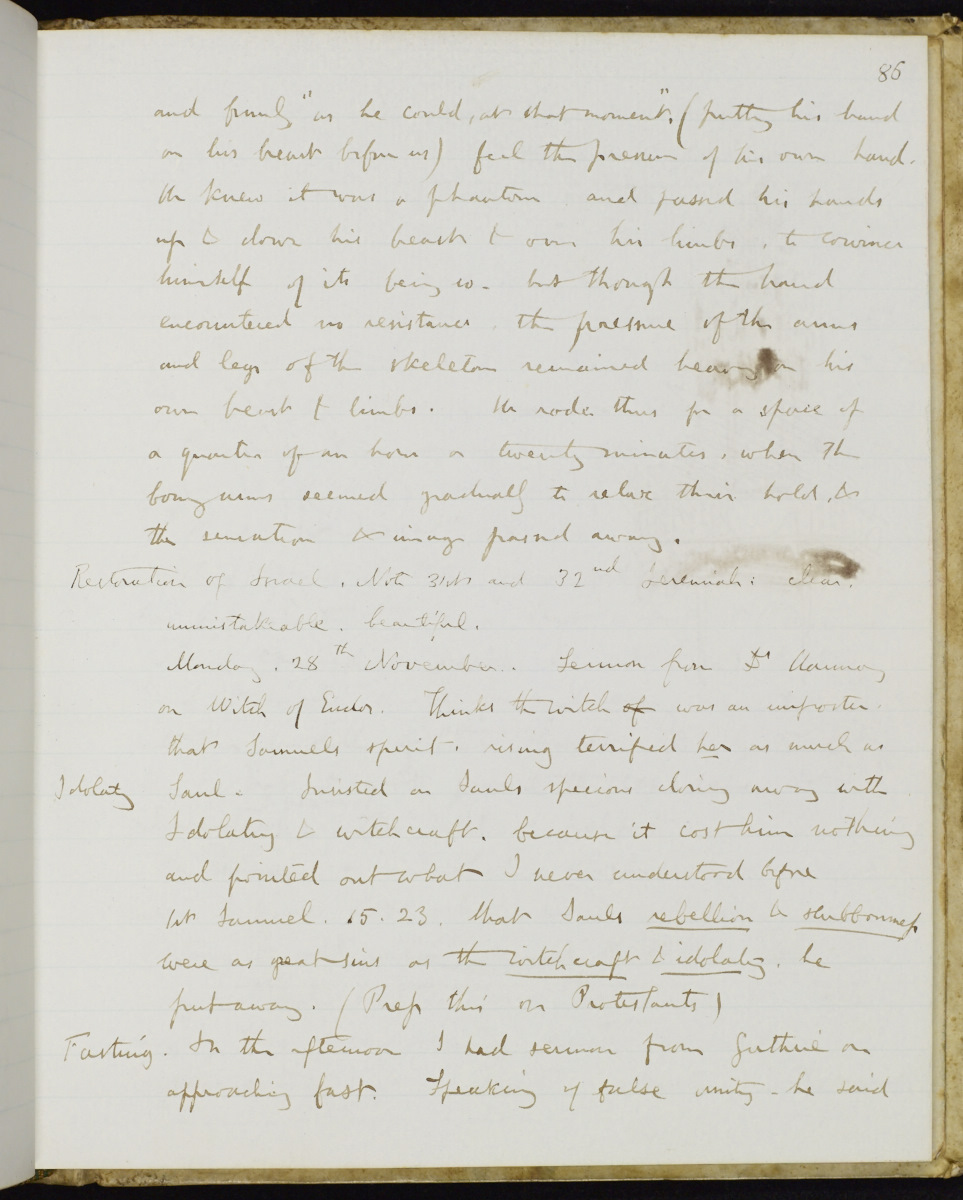 86
and firmly "as he could, at that moment", (putting his hand
on his breast before us) feel the pressure of his own hand.
He knew it was a phantom and passed his hands
up & down his breast & over his limbs, to convince
himself of its being so - but though the hand
encountered no resistance, the pressure of the arms
and legs of the skeleton remained heavy on his
own breast & limbs. He rode thus for a space of
a quarter of an hour or twenty minutes, when the
bony arms seemed gradually to relax their hold, &
the sensation & image passed away.
Restoration of Israel. Note 31st and 32nd Jeremiah: clear.
unmistakeable. beautiful.
Monday. 28th November. Sermon from Dr Hannay
on Witch of Endor. Thinks the witch of was an imposter.
that Samuels spirit, rising terrified her as much as
Idolatry Saul - Insisted on Sauls specious doing away with
Idolatry & witchcraft, because it cost him nothing
and pointed out what I never understood before
1st Samuel. 15. 23. that Sauls rebellion & stubbornness
were as great sins as the witchcraft & idolatry, he
put away. (Press this on Protestants)
Fasting. In the afternoon I had sermon from Guthrie on
approaching fast. Speaking of false unity - he said